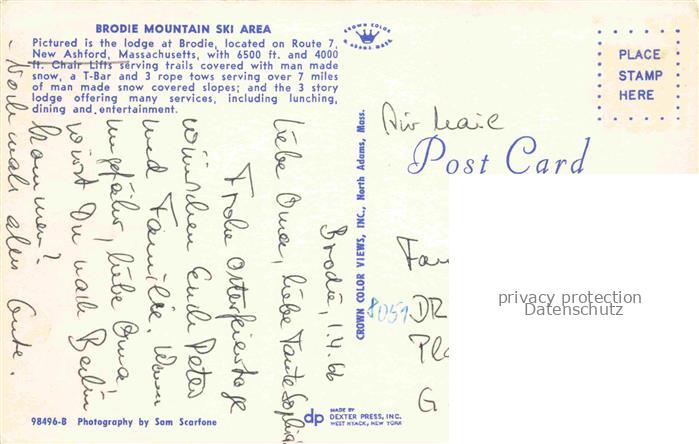 BRODIE MOUNTAIN SKI AREA
Pictured is the lodge at Brodie, located on Route 7,
New Ashford, Massachusetts, with 6500 ft. and 4000
ft. Chair Lifts serving trails covered with man made
snow, a T-Bar and 3 rope tows serving over 7 miles
of man made snow covered slopes; and the 3 story
lodge offering many services, including lunching,
dining and entertainment.
Brodie, 1.4.66
Liebe Oma, liebe Tante Sophie,
Frohe Osterfeiertage
wünschen Euch Peter
und Familie. Wann
ungefähr, liebe Oma,
wirst Du nach Berlin
kommen?
- Nochmals alles Gute.
98496-B Photography by Sam Scarfone
CROWN COLOR VIEWS, INC., North Adams, Mass.
dp
MADE BY
DEXTER PRESS, INC.
WEST NYACK, NEW YORK
CROWN COLOR
N. ADAMS, MASS.
PLACE
STAMP
HERE
Air Mail
Post Card
Fam
8051
DR
G
privacy protection
Datenschutz